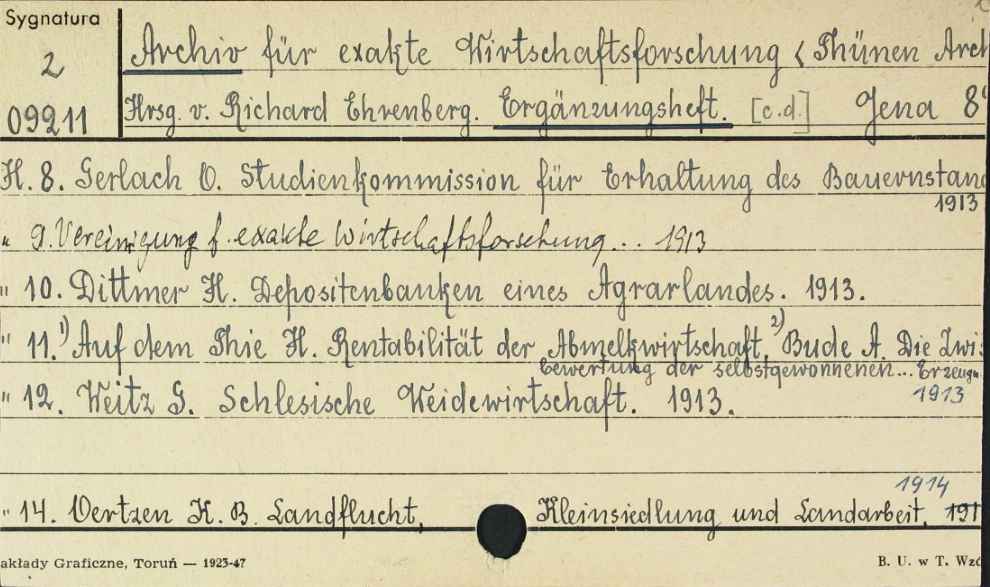 Sygnatura
2
09211
Archiv für exakte Wirtschaftsforschung < Thünen Arch
Hrsg. v. Richard Ehrenberg. Ergänzungsheft. [c.d.] Jena 8°
H. 8. Gerlach O. Studienkommission für Erhaltung des Bauernstand
1913
" 9. Vereinigung f. exakte Wirtschaftsforschung... 1913
" 10. Dittmer H. Depositenbanken eines Agrarlandes. 1913.
" 11. 1) Auf dem Thie H. Rentabilität der Abmelkwirtschaft, 2) Bude A. Die Zwi
bewertung der selbstgewonnenen... Erzeugn
1913
" 12. Weitz G. Schlesische Weidewirtschaft. 1913.
1914
" 14. Oertzen K. B. Landflucht, Kleinsiedlung und Landarbeit, 191
akłady Graficzne, Toruń — 1923-47
B. U. w T. Wzó